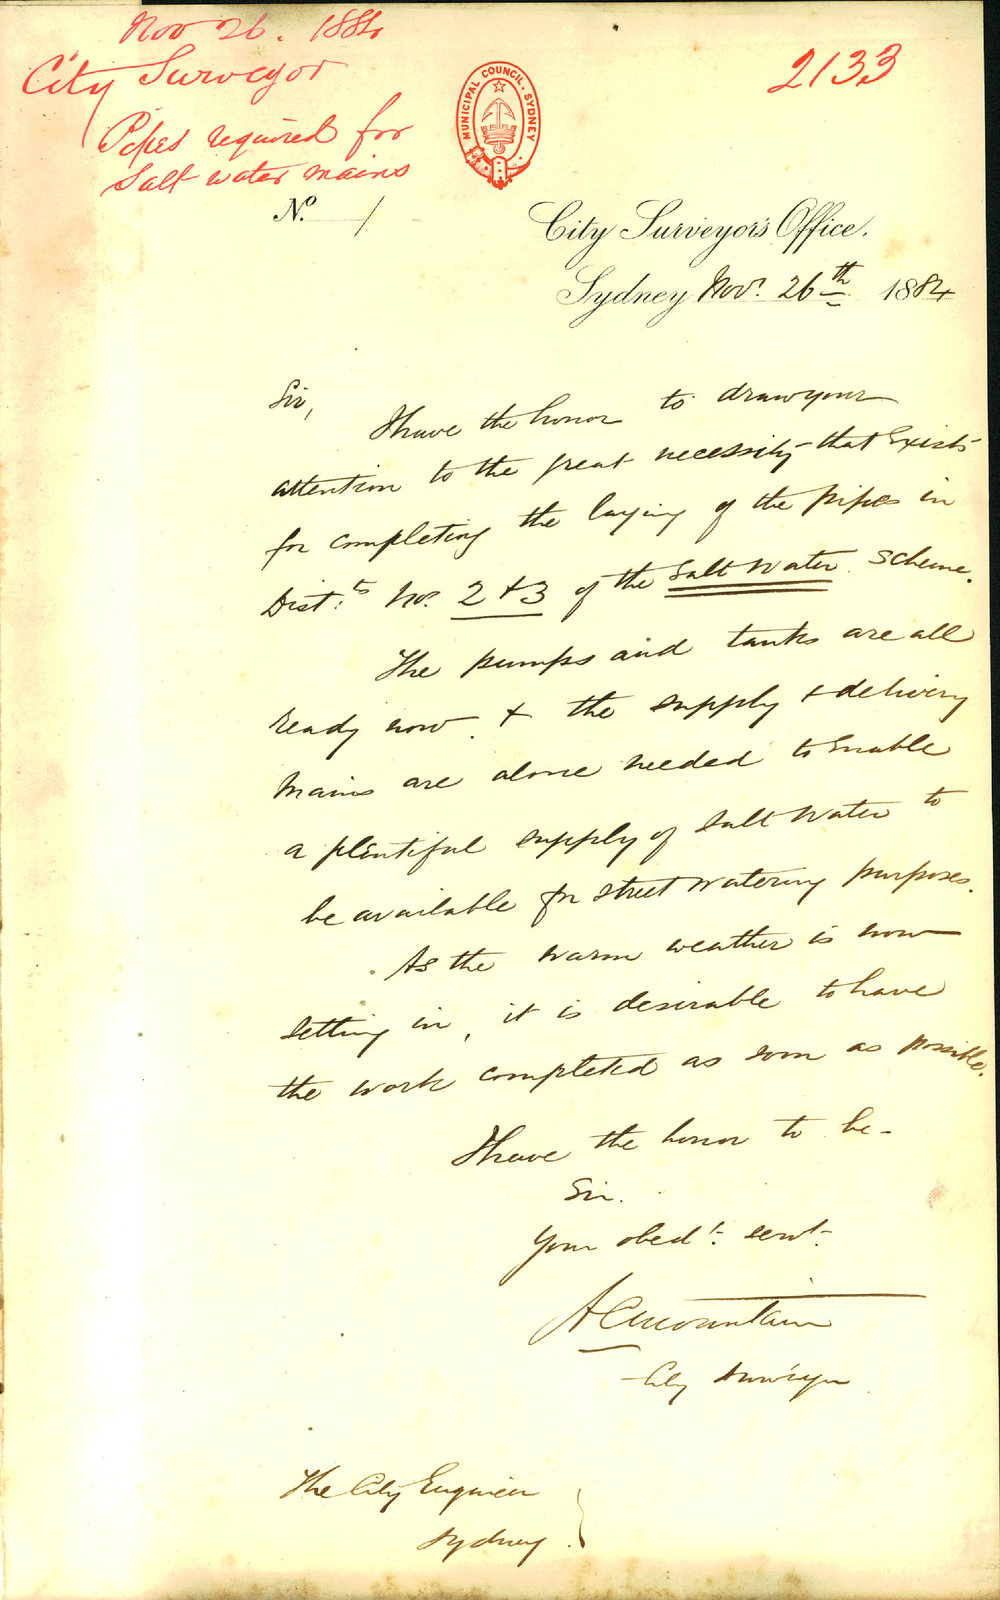 Nov 26. 1884
City Surveyor
Pipes required for
Salt water mains
2133
MUNICIPAL COUNCIL. SYDNEY
No. /
City Surveyor's Office.
Sydney Nov. 26th 1884
Sir,
I have the honor to draw your
attention to the great necessity that exists
for completing the laying of the pipes in
Dist:ts Nos. 2 + 3 of the Salt Water Scheme.
The pumps and tanks are all
ready now + the supply + delivery
mains are alone needed to enable
a plentiful supply of salt water to
be available for street watering purposes.
As the warm weather is now
setting in, it is desirable to have
the work completed as soon as possible.
I have the honor to be-
Sir.
Your obedt. servt.
A C Mountain
City Surveyor
The City Engineer
Sydney.